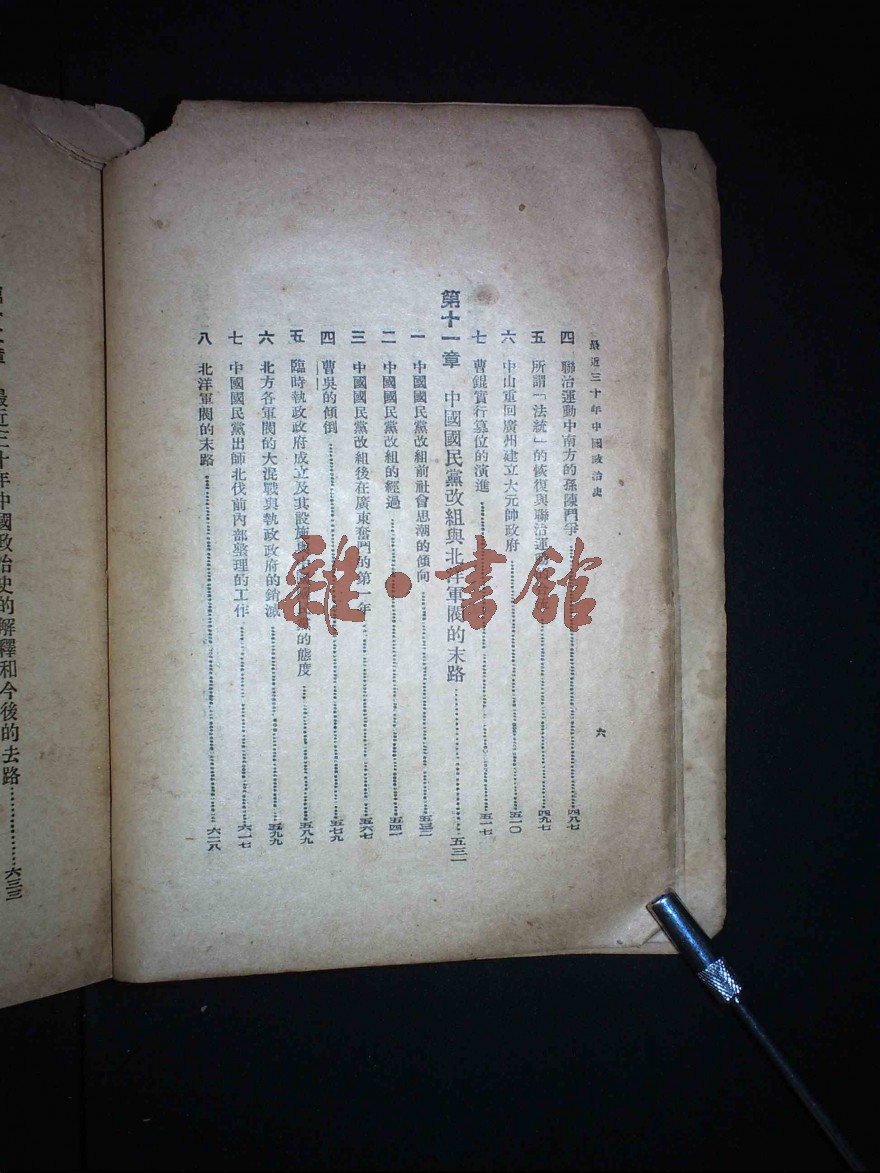 最近三十年中國政治史
六
四 聯治運動中南方的孫陳鬥爭……四八七
五 所謂「法統」的恢復與聯治運動……四九七
六 中山重回廣州建立大元帥政府……五一〇
七 曹錕實行篡位的演進……五一七
第十一章 中國國民黨改組與北洋軍閥的末路……五三一
一 中國國民黨改組前社會思潮的傾向……五三二
二 中國國民黨改組的經過……五四一
三 中國國民黨改組後在廣東奮鬥的第一年……五六七
四 曹吳的傾倒……五七九
五 臨時執政政府成立及其設施與……的態度……五八九
六 北方各軍閥的大混戰與執政政府的銷滅……五九九
七 中國國民黨出師北伐前內部整理的工作……六一七
八 北洋軍閥的末路……六二八
最近三十年中國政治史的解釋和今後的去路……六三三
雜·書館